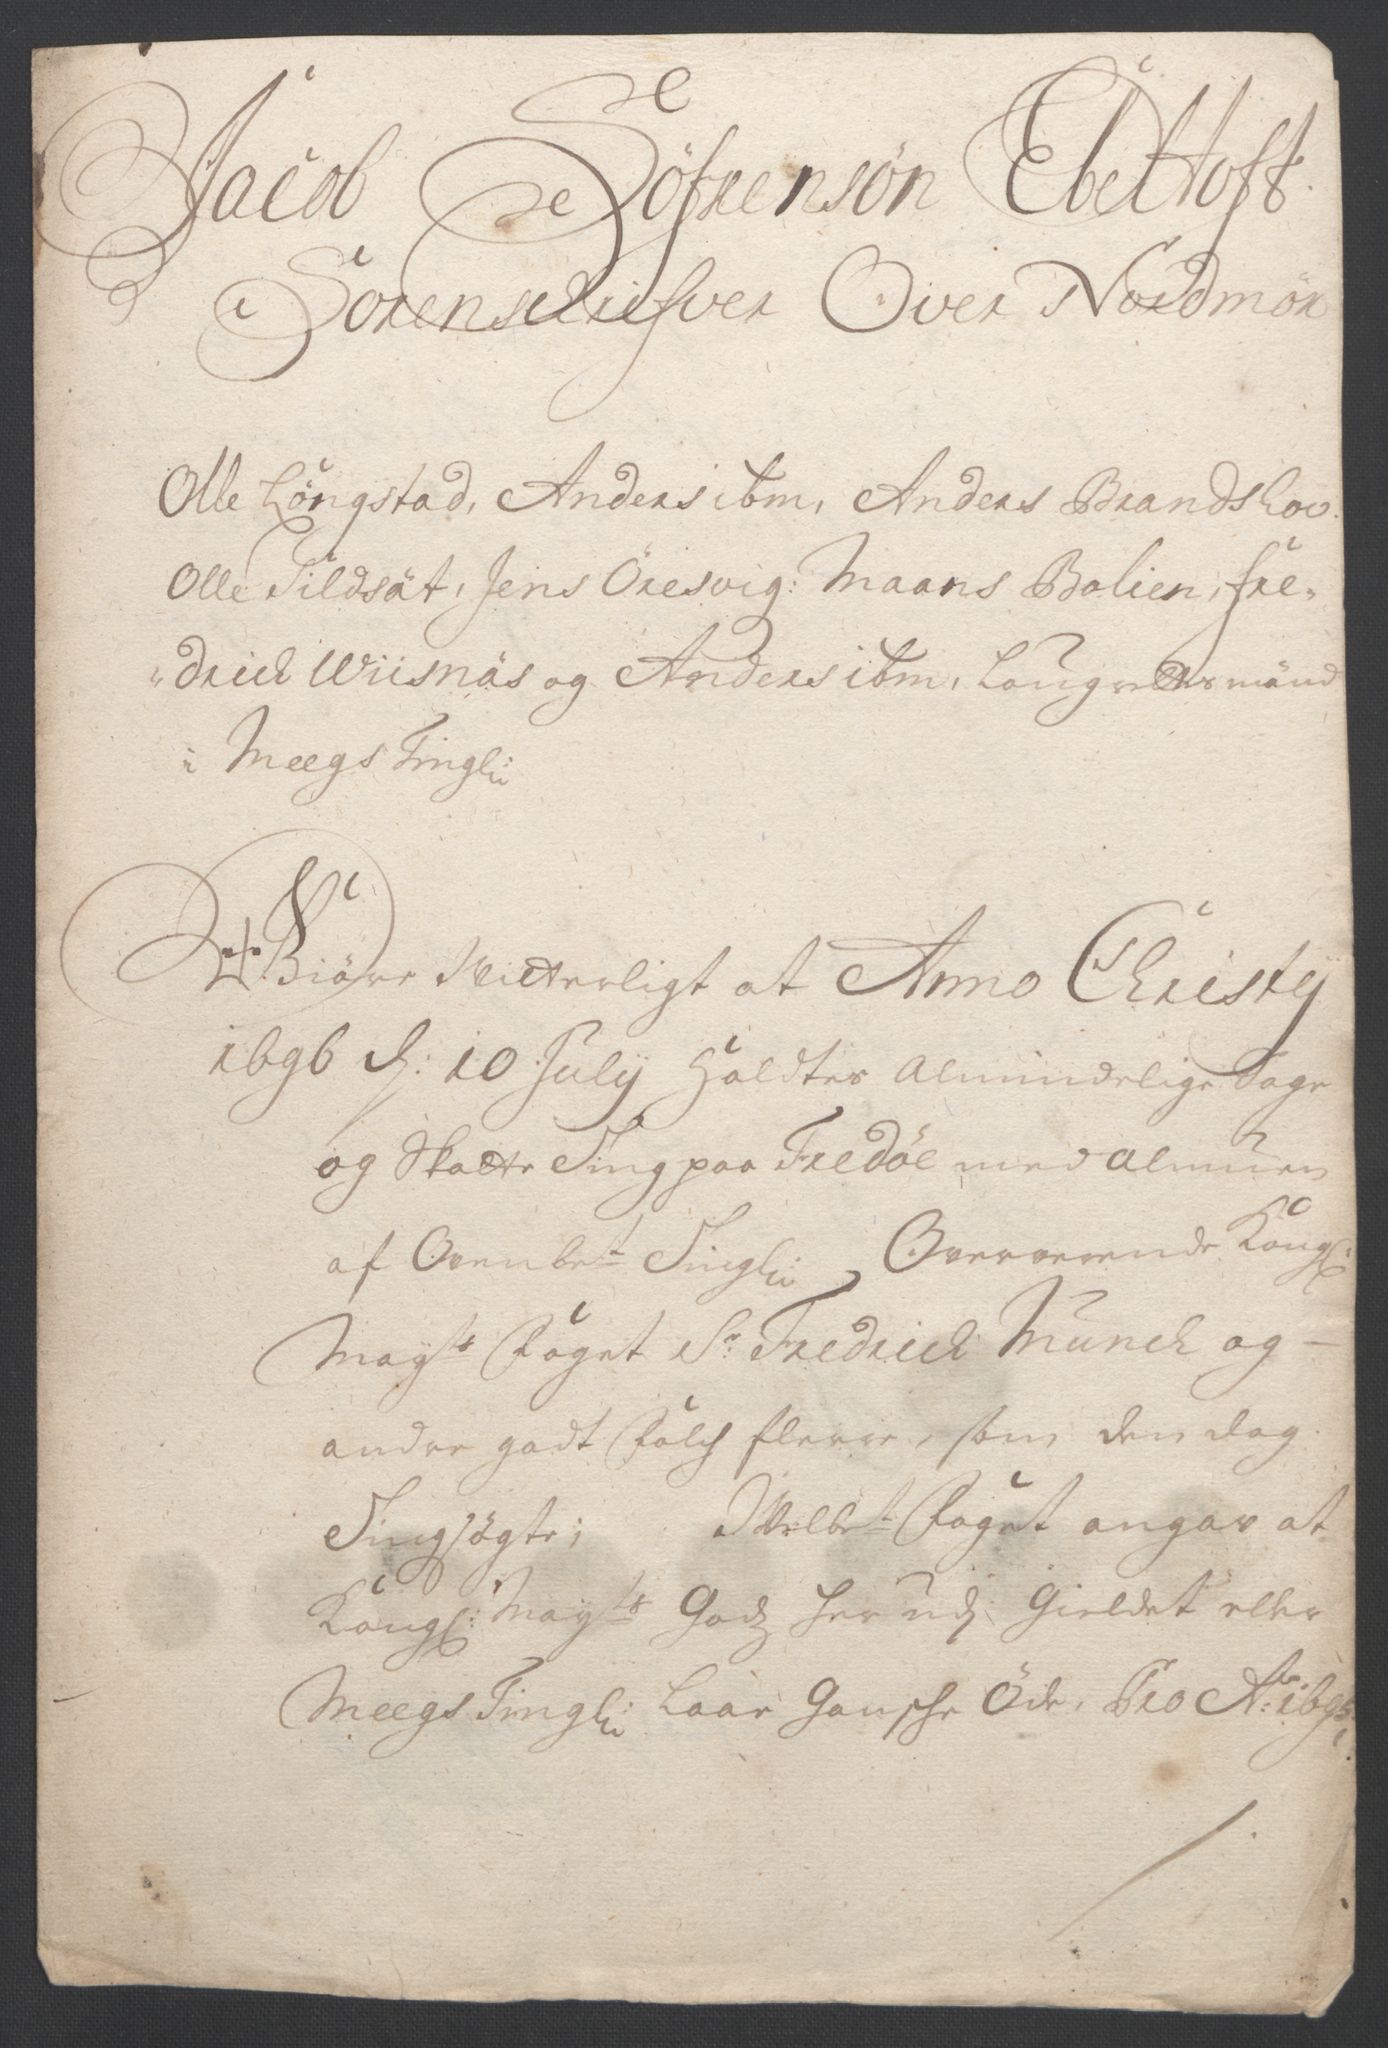 Jacob Söfrensön Ebeltoft
Sorenschrifver Over Nordmör
Olle Löngstad, Anders ibm, Anders Brandshov.
Olle Tildsät, Jens Öresvig: Maans Bolien, fre-
drich Wiisnäs og Anders ibm, Laugrettesmänd
i Meegs Tingl:
Giöre Witterligt at Anno Christy
1696 d: 10 July Holdtes Almindelige Sage
og Skatte Ting paa Fredöe med Almuen
af Ovenbet Tingl: Oververende Kongl:
Mayts Foget Sr Fredrich Munch og
andre godt Folch flerre, som den dag
Ting sögte; Welbet Foget angav at
Kongl: Mayts Godz her udj Gieldet eller
Meegs Tingl: Laae Gansche Öde, Pro Ao 1695,